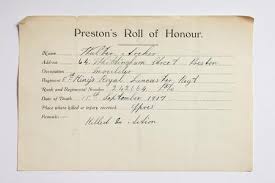 Preston's Roll of Honour.
Name Walter Archer
Address 64, Whittingham Street Preston
Occupation Moulder
Regiment 8th Kings Royal Lancaster Regt
Rank and Regimental Number 242164. Pte
Date of Death 15th September 1917
Place where killed or injury received Ypres
Remarks Killed In Action